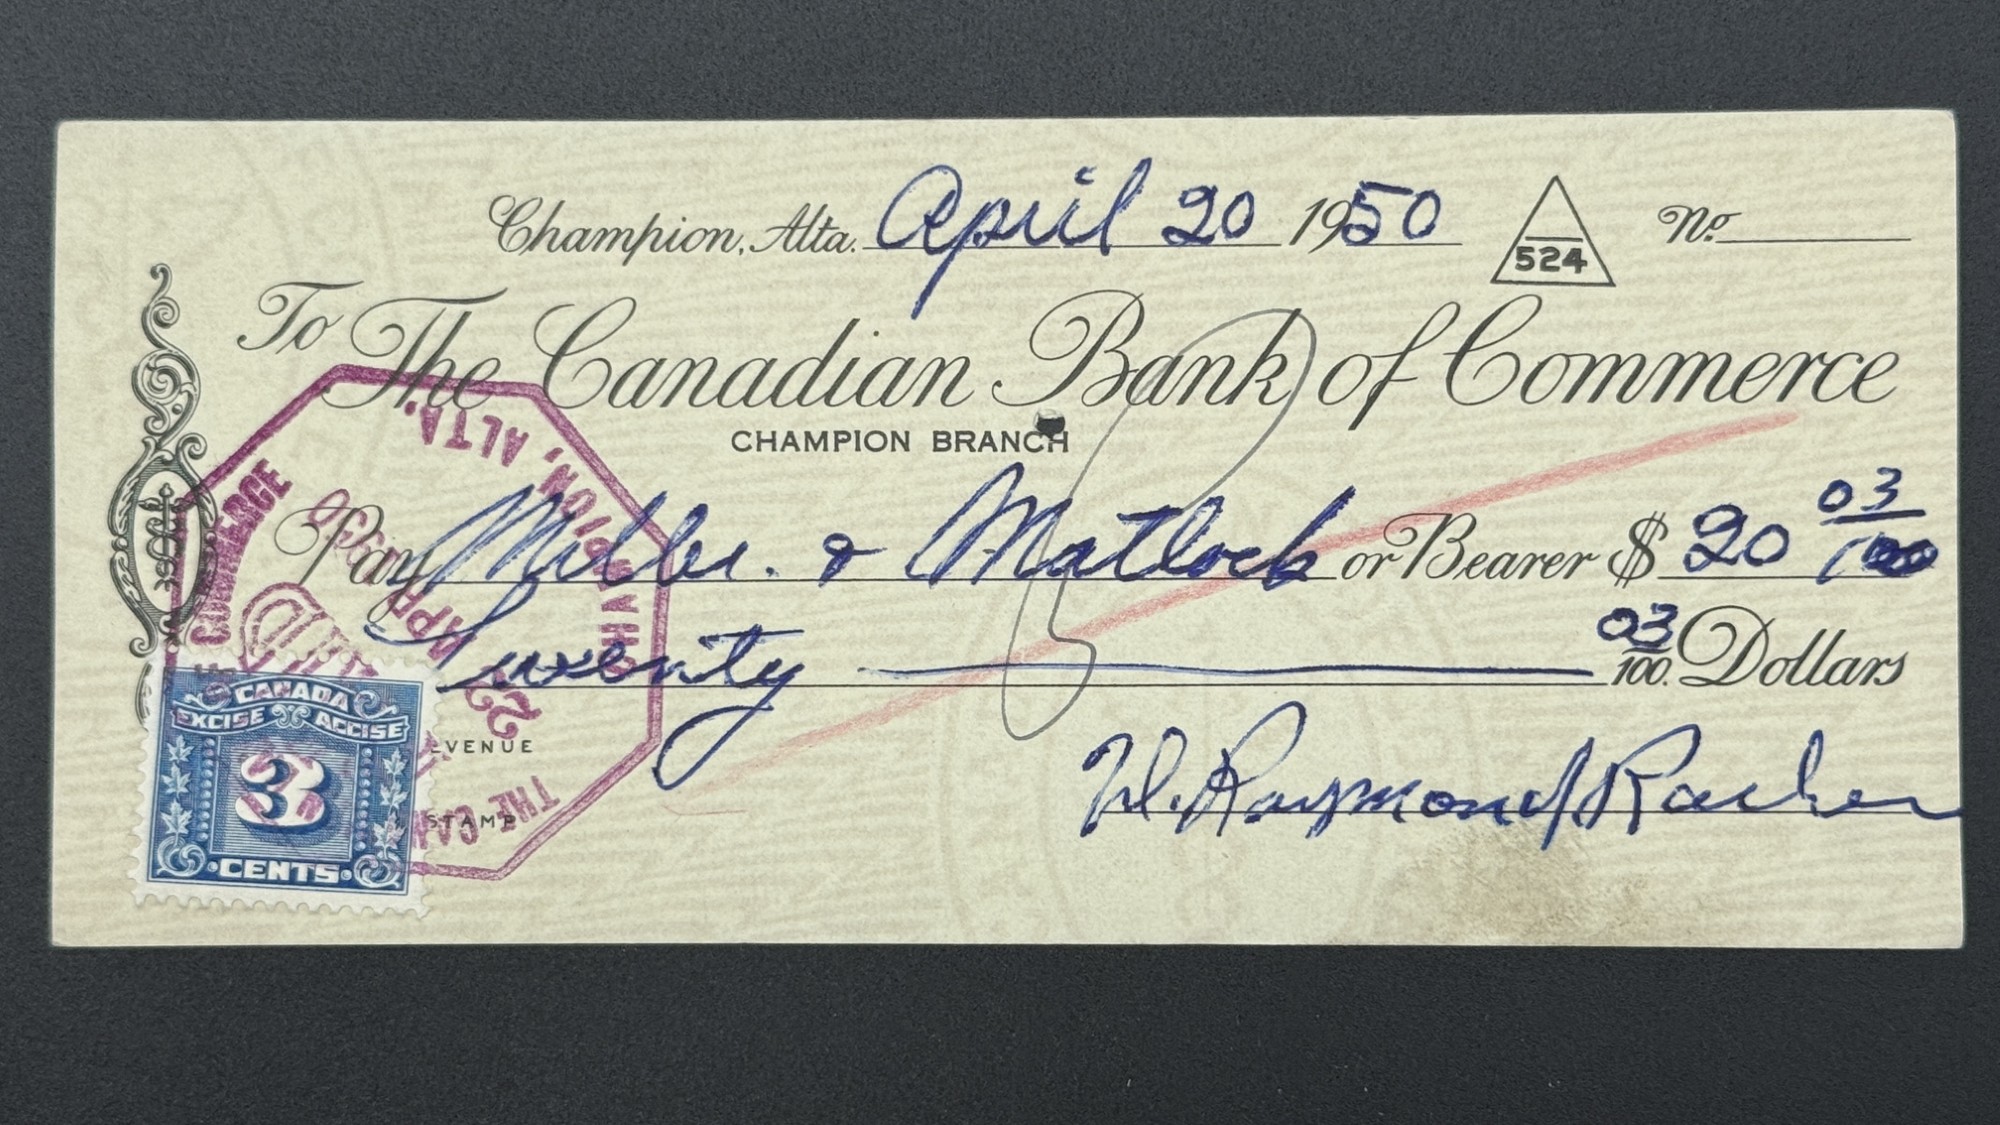 Champion, Alta. April 20 1950 524 No.
To The Canadian Bank of Commerce
CHAMPION BRANCH
Pay Miller & Matlock or Bearer $ 20 03/100
Twenty 03/100. Dollars
W. Raymond
EVENUE
STAMP
CANADA
EXCISE ACCISE
3
CENTS
COMMERCE
CHAMPION, ALTA.
PAID
APR 22 1950
THE CAN